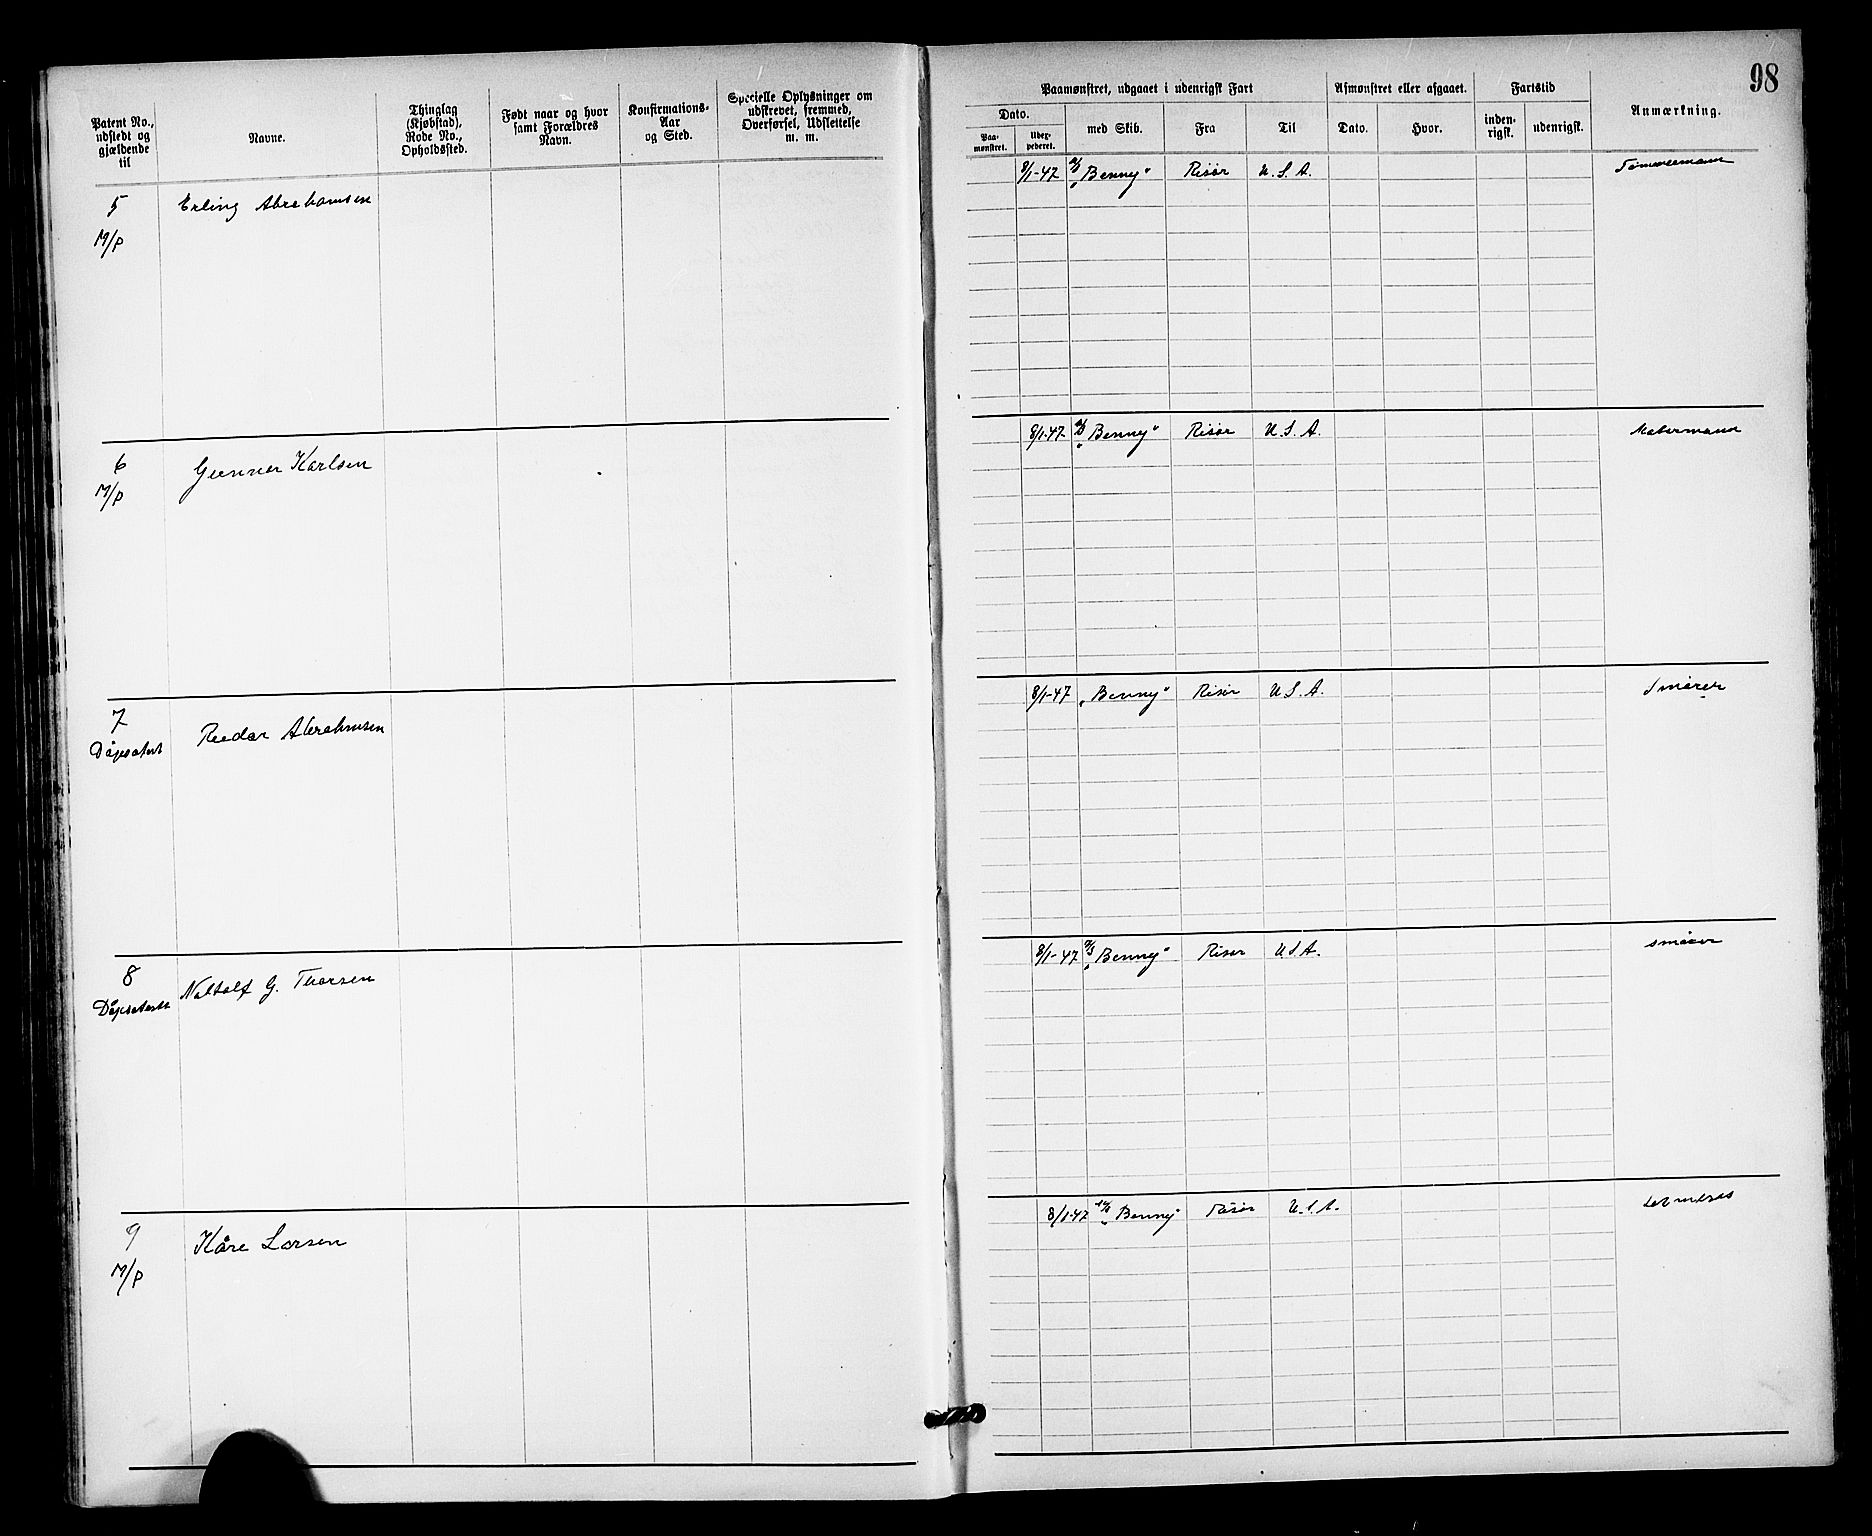 98
Patent No., udstedt og gjældende til
Navne.
Thinglag (Kjøbstad), Rode No., Opholdssted.
Født naar og hvor samt Forældres Navn.
Konfirmations-Aar og Sted.
Specielle Oplysninger om udskrevet, fremmed, Overførsel, Udslettelse m. m.
Paamønstret, udgaaet i udenrigsk Fart
Dato.
Paa-mønstret.
Uder-pederet.
med Skib.
Fra
Til
Afmønstret eller afgaaet.
Dato.
Hvor.
Fartstid
inden-rigsk.
udenrigsk.
Anmærkning.
5 M/P Erling Abrahamsen 8/1-47 "Benny" Risør U.S.A. Tømmermann
6 M/P Gunnar Karlsen 8/1-47 "Benny" Risør U.S.A. Motormann
7 Dåpsattest Reidar Abrahamsen 8/1-47 "Benny" Risør U.S.A. Smører
8 Dåpsattest G. Thorsen 8/1-47 "Benny" Risør U.S.A. smører
9 M/P Kåre Larsen 8/1-47 "Benny" Risør U.S.A.